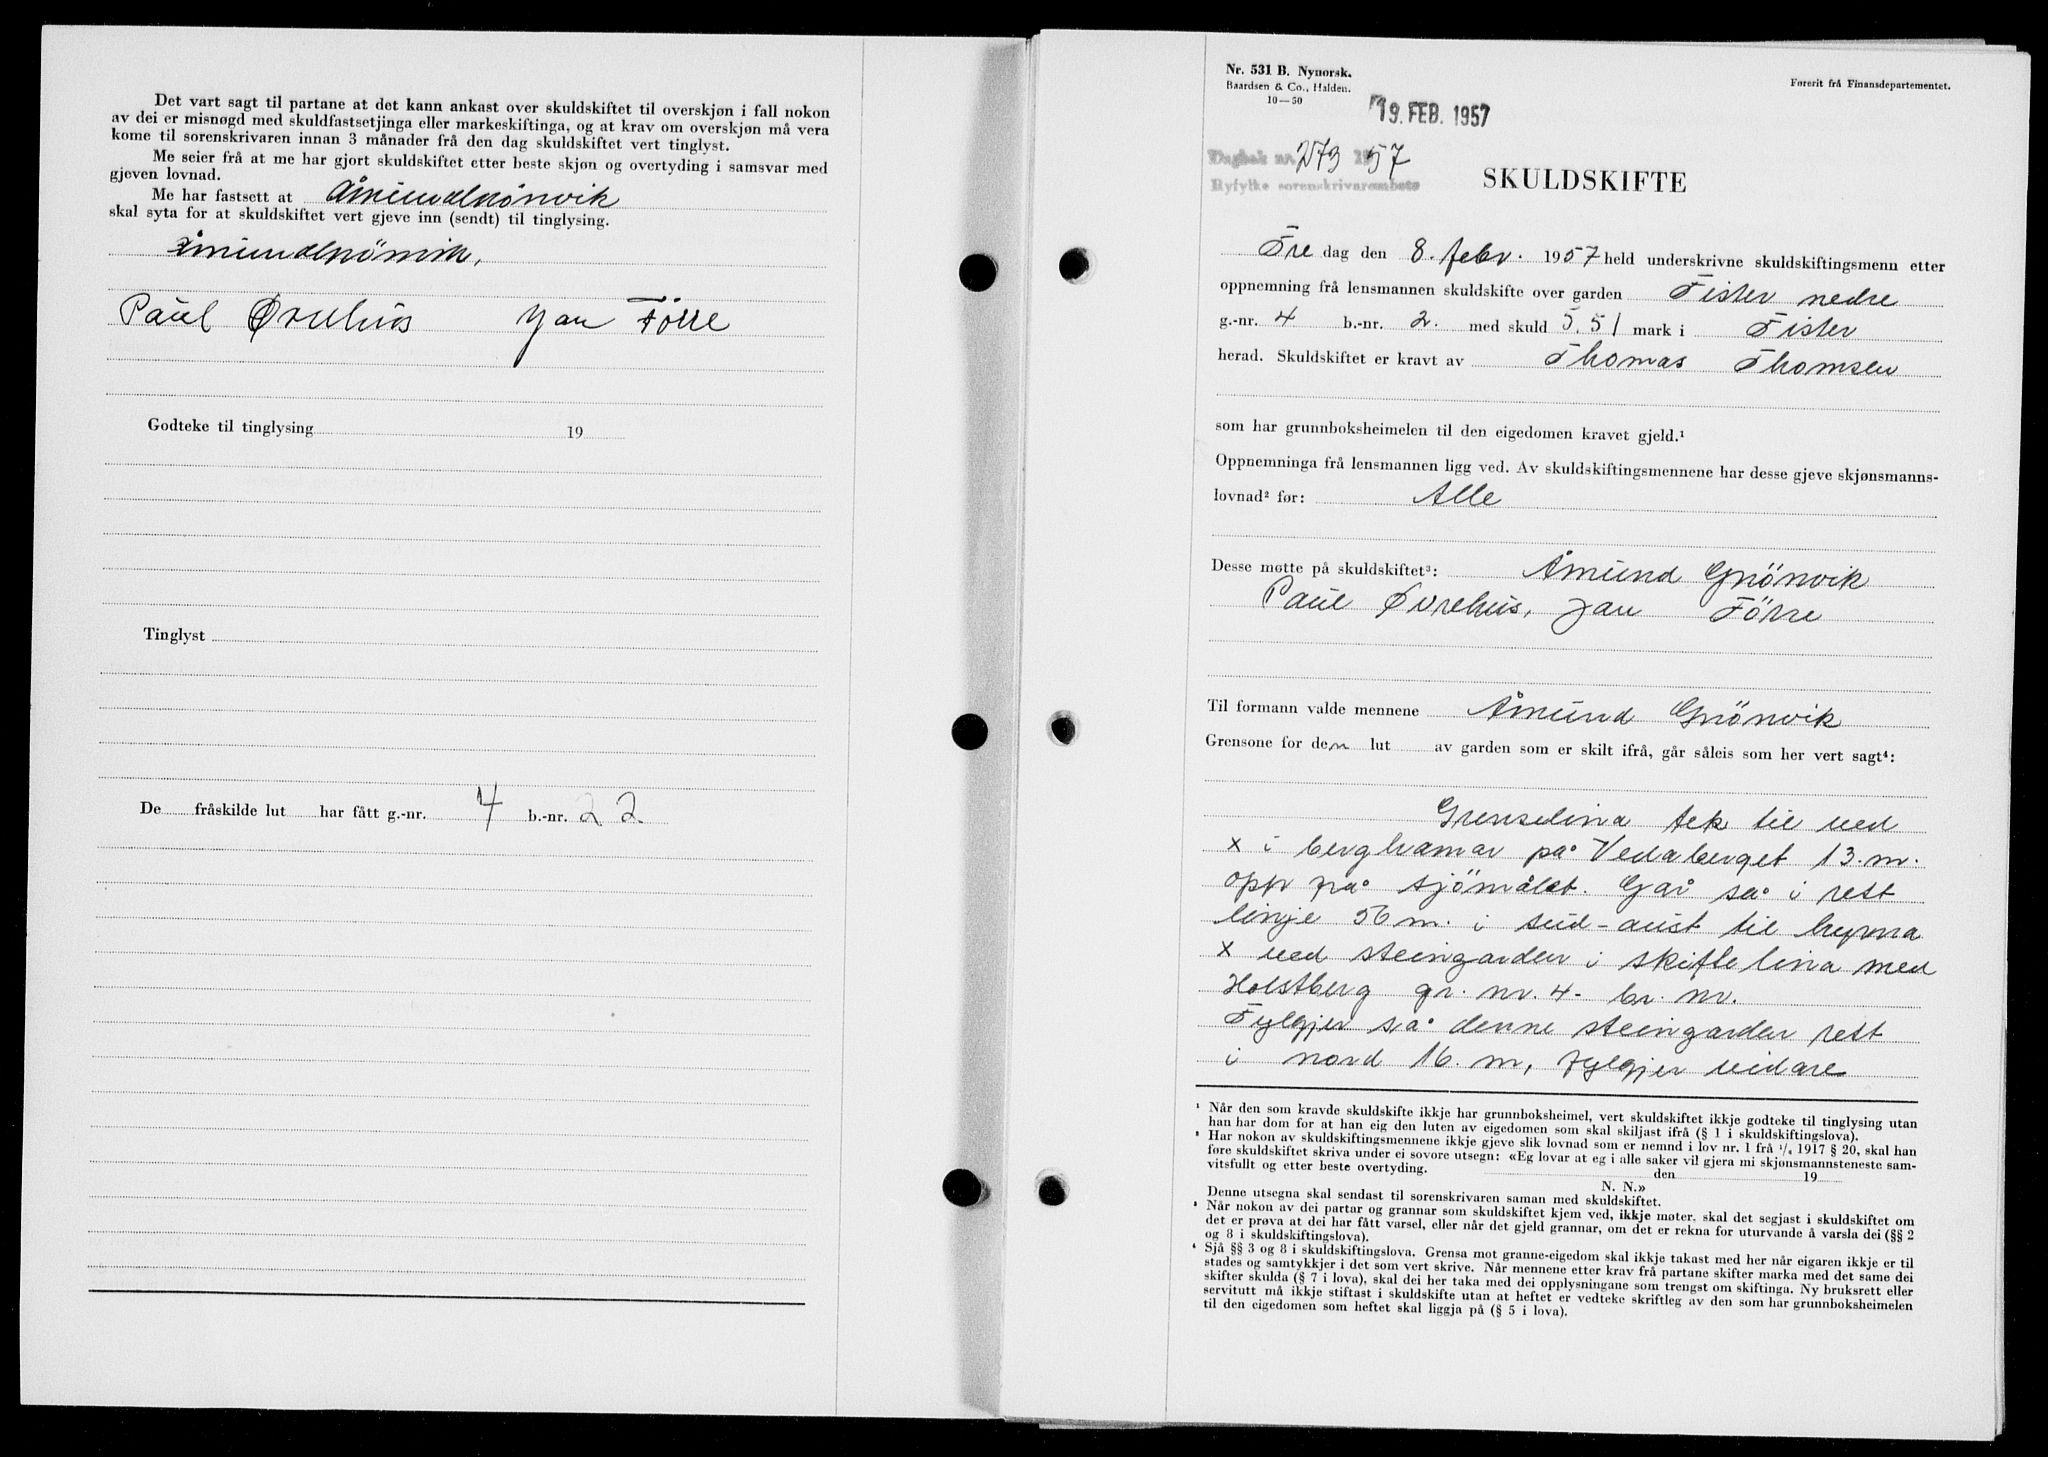 Det vart sagt til partane at det kann ankast over skuldskiftet til overskjøn i fall nokon
av dei er misnøgd med skuldfastsetjinga eller markeskiftinga, og at krav om overskjøn må vera
kome til sorenskrivaren innan 3 månader frå den dag skuldskiftet vert tinglyst.
Me seier frå at me har gjort skuldskiftet etter beste skjøn og overtyding i samsvar med
gjeven lovnad.
Me har fastsett at Åmund Grönvik
skal syta for at skuldskiftet vert gjeve inn (sendt) til tinglysing.
Åmund Grönvik,
Paul Øvrehus Jan Förre
Godteke til tinglysing 19
Tinglyst
De fråskilde lut har fått g.-nr. 4 b.-nr. 22
Nr. 531 B. Nynorsk.
Baardsen & Co., Halden.
10—50
Førerit frå Finansdepartementet.
19. FEB. 1957
Dagbok nr. 273 1957
Ryfylke sorenskrivarembete
SKULDSKIFTE
Fre dag den 8. febr. 1957 held underskrivne skuldskiftingsmenn etter
oppnemning frå lensmannen skuldskifte over garden Fister nedre
g.-nr. 4 b.-nr. 2. med skuld 5.51 mark i Fister
herad. Skuldskiftet er kravt av Thomas Thomsen
som har grunnboksheimelen til den eigedomen kravet gjeld.¹
Oppnemninga frå lensmannen ligg ved. Av skuldskiftingsmennene har desse gjeve skjønsmanns-
lovnad² før: Alle
Desse møtte på skuldskiftet³: Åmund Grönvik
Paul Øvrehus, Jan Förre
Til formann valde mennene Åmund Grönvik
Grensone for den lut av garden som er skilt ifrå, går såleis som her vert sagt⁴:
Grenselina tek til ved
x i berghamar på Vedaberget 13. m.
opp frå sjömålet. Går så i rett
linje 56 m. i sud-aust til hyrna
x ved steingarden i skiftelina med
Holstberg gr. nr. 4- br. nr.
Fylgjer så denne steingarden rett
i nord 16. m, fylgjer vidare
¹ Når den som kravde skuldskifte ikkje har grunnboksheimel, vert skuldskiftet ikkje godteke til tinglysing utan
han har dom for at han eig den luten av eigedomen som skal skiljast ifrå (§ 1 i skuldskiftingslova).
² Har nokon av skuldskiftingsmennene ikkje gjeve slik lovnad som er nemnd i lov nr. 1 frå ¹/₆ 1917 § 20, skal han
føre skuldskiftet skriva under ei sovore utsegn: «Eg lovar at eg i alle saker vil gjera mi skjønsmannsteneste sam-
vitsfullt og etter beste overtyding. den 19
N. N.»
Denne utsegna skal sendast til sorenskrivaren saman med skuldskiftet.
³ Når nokon av dei partar og grannar som skuldskiftet kjem ved, ikkje møter. skal det segjast i skuldskiftet om
det er prøva at dei har fått varsel, eller når det gjeld grannar, om det er rekna for uturvande å varsla dei (§§ 2
og 8 i skuldskiftingslova).
⁴ Sjå §§ 3 og 8 i skuldskiftingslova. Grensa mot granne-eigedom skal ikkje takast med her når eigaren ikkje er til
stades og samtykkjer i det som vert skrive. Når mennene etter krav frå partane skifter marka med det same dei
skifter skulda (§ 7 i lova), skal dei her taka med dei opplysningane som trengst om skiftinga. Ny bruksrett eller
servitutt må ikkje stiftast i skuldskifte utan at heftet er vedteke skriftleg av den som har grunnboksheimelen
til den eigedomen som heftet skal liggja på (§ 5 i lova).